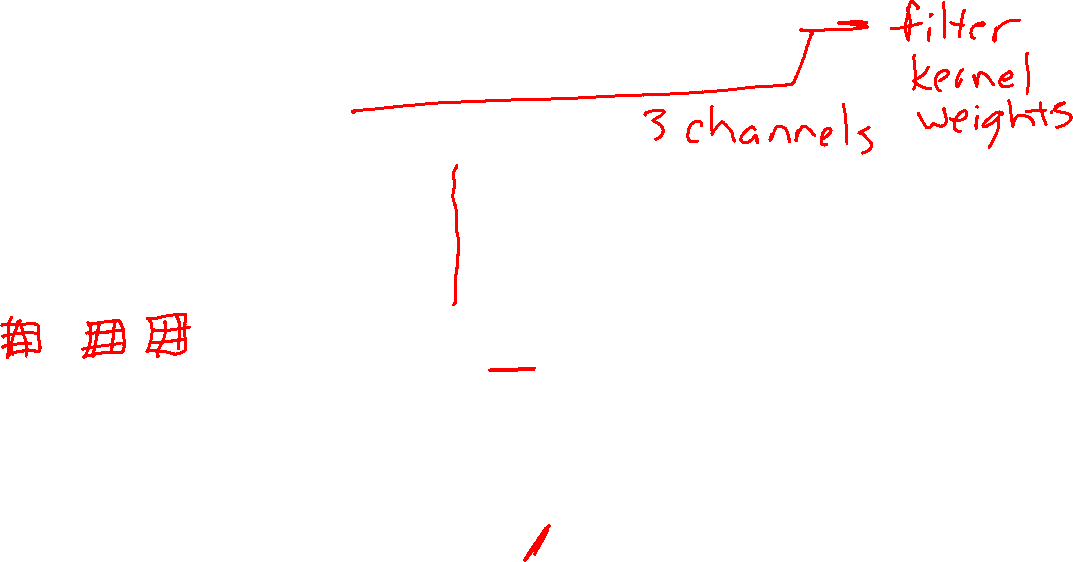 filter
kernel
weights
3 channels